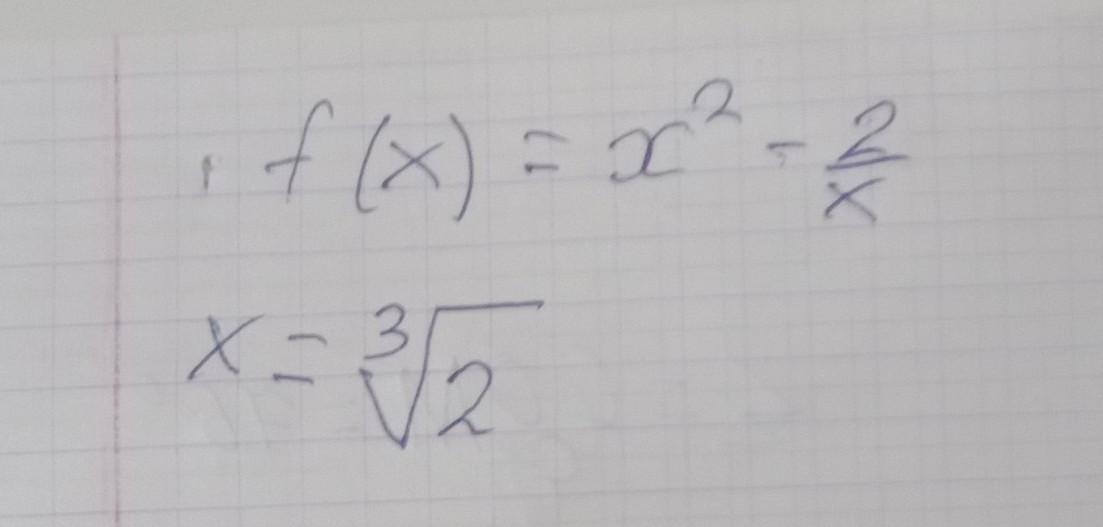 f(x) = x² - 2/x
x = ∛2